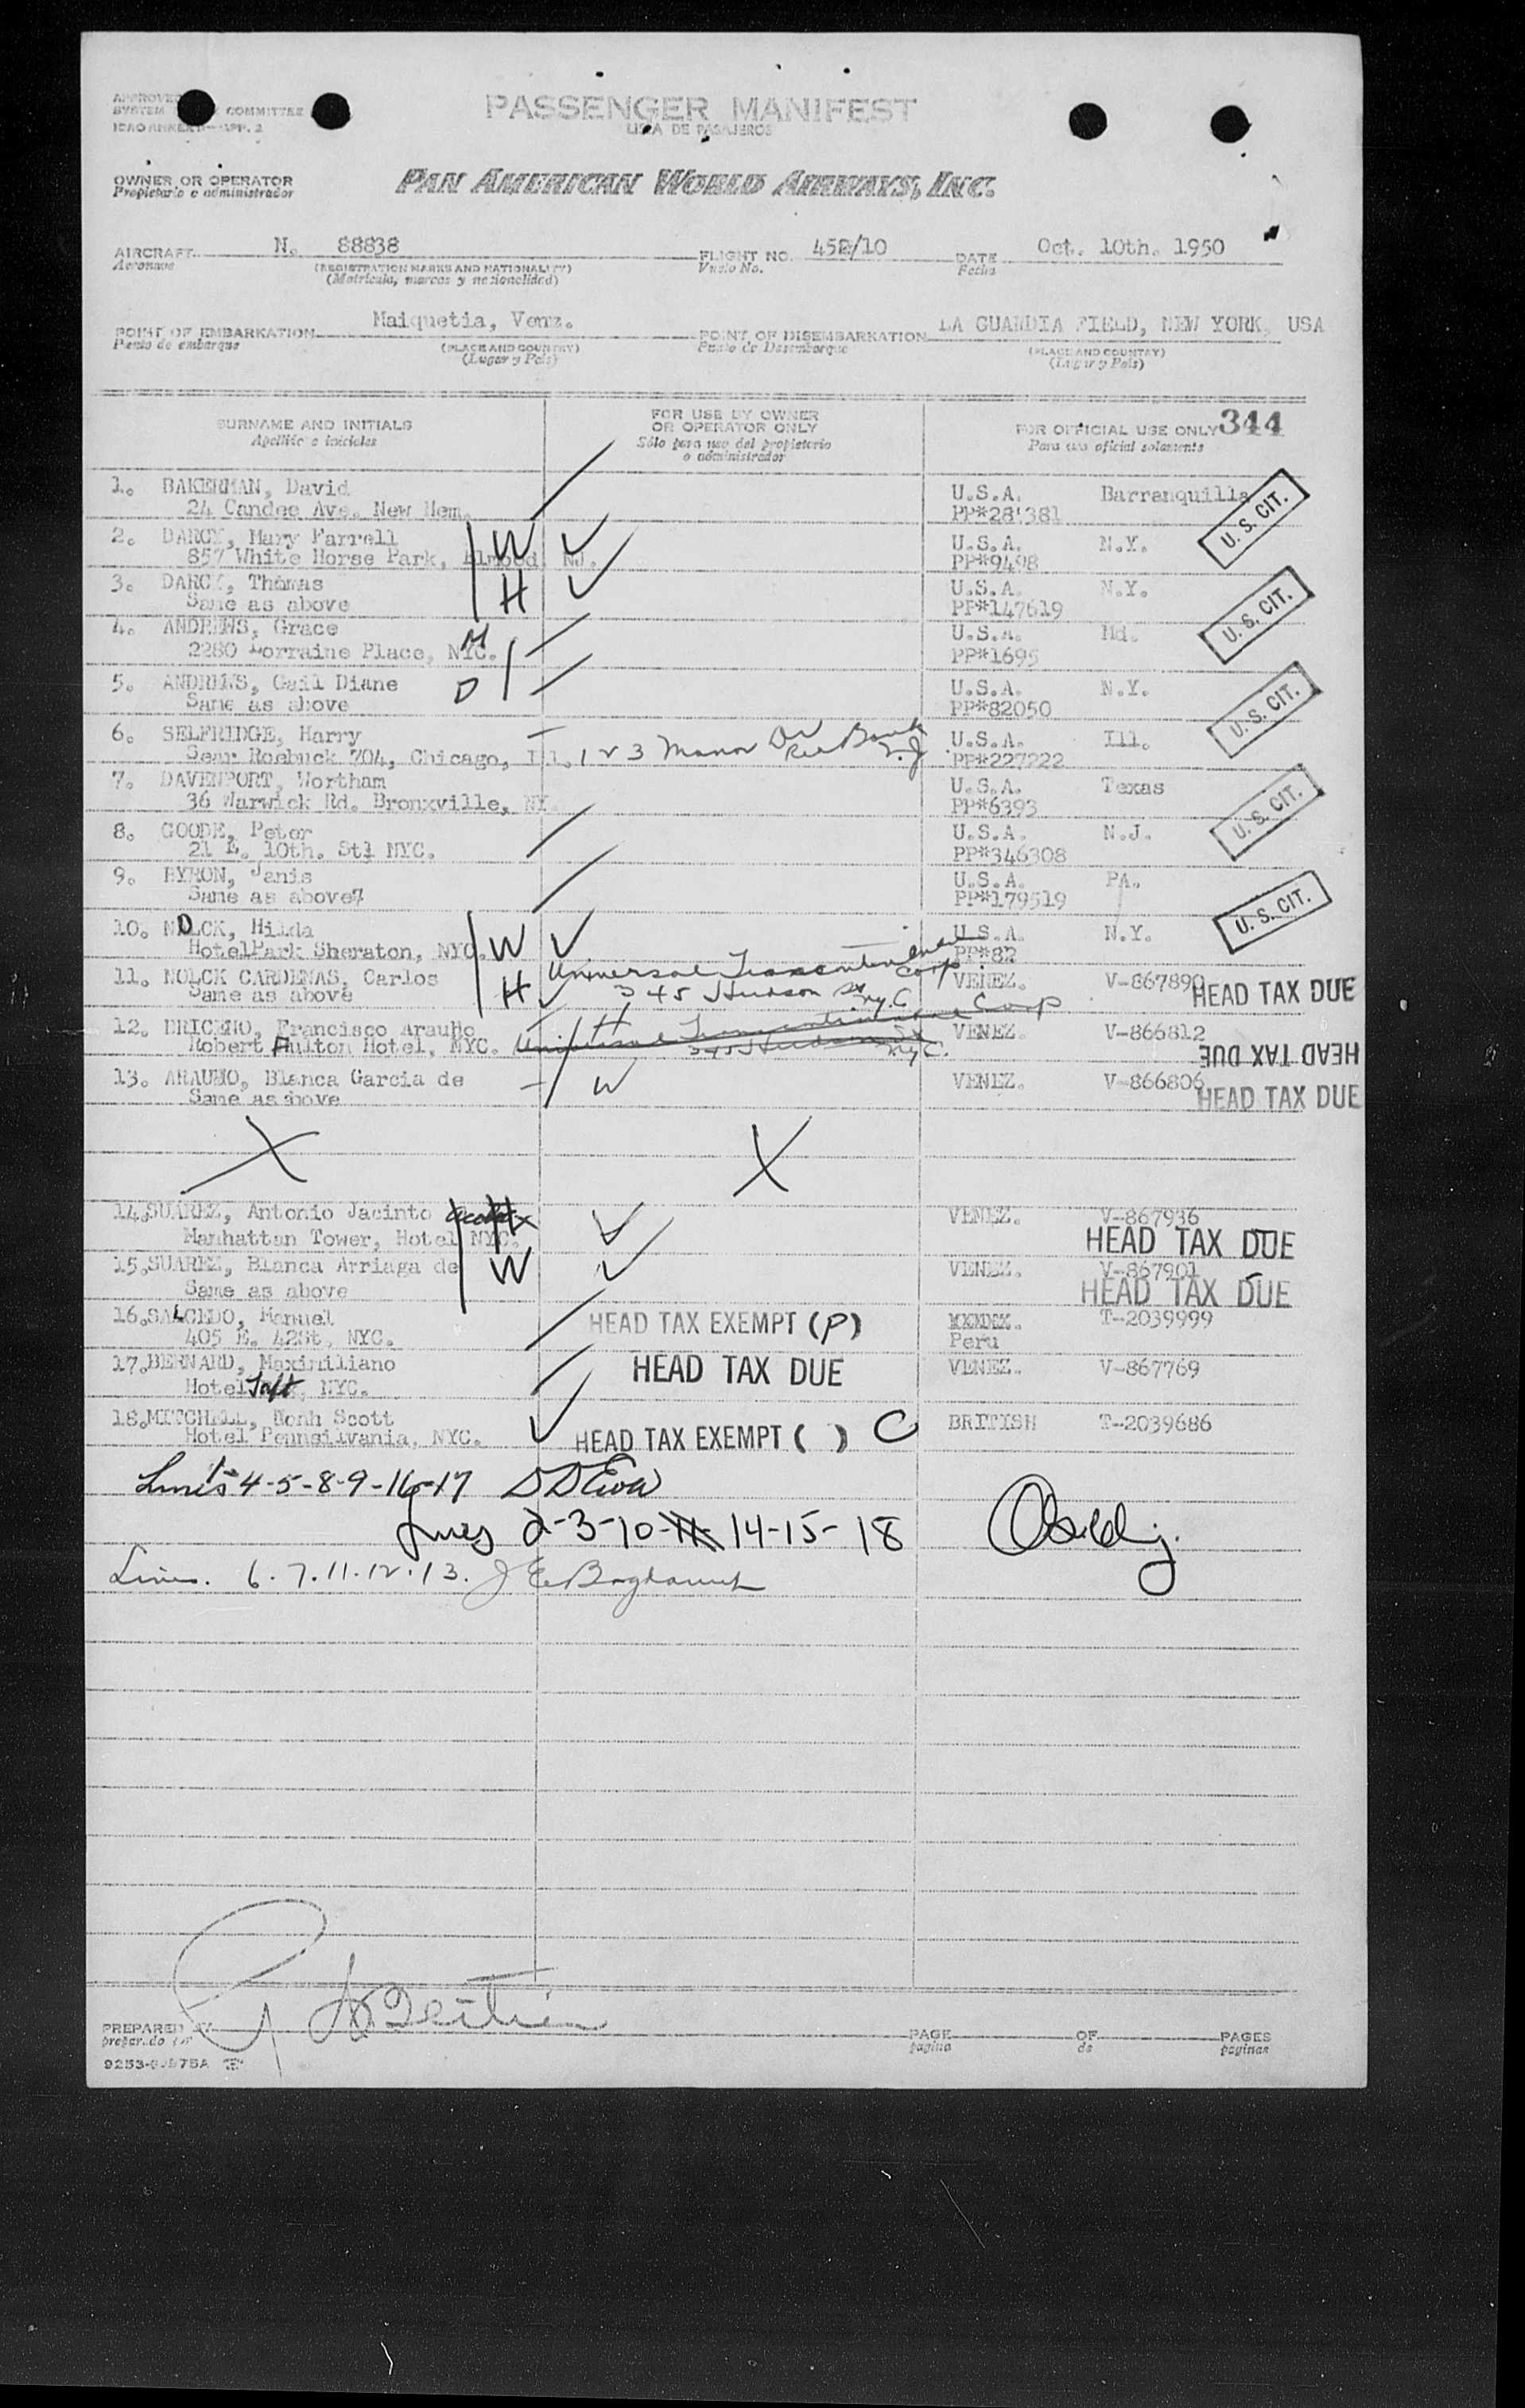 APPROVED
SYSTEM COMMITTEE
ICAO ANNEX 9—APP. 2
PASSENGER MANIFEST
LISTA DE PASAJEROS
OWNER OR OPERATOR
Propietario o administrador
PAN AMERICAN WORLD AIRWAYS, INC.
AIRCRAFT N. 88838 FLIGHT NO. 452/10 DATE Oct. 10th. 1950
Aeronave (REGISTRATION MARKS AND NATIONALITY) Vuelo No. Fecha
(Matricula, marcas y nacionalidad)
POINT OF EMBARKATION Maiquetia, Venz. POINT OF DISEMBARKATION LA GUARDIA FIELD, NEW YORK, USA
Punto de embarque (PLACE AND COUNTRY) Punto de Desembarque (PLACE AND COUNTRY)
(Lugar y Pais) (Lugar y Pais)
SURNAME AND INITIALS FOR USE BY OWNER OR OPERATOR ONLY FOR OFFICIAL USE ONLY 344
Apellido e iniciales Sólo para uso del propietario o administrador Para uso oficial solamente
1. BAKERMAN, David U.S.A. Barranquilla
24 Candee Ave. New Hem. PP#281381 U.S. CIT.
2. DARCY, Mary Farrell W U.S.A. N.Y.
857 White Horse Park, Elmood, NJ. PP#9498
3. DARCY, Thomas H U.S.A. N.Y.
Same as above PP#147619 U.S. CIT.
4. ANDREWS, Grace M U.S.A. Md.
2280 Lorraine Place, NYC. PP#1695
5. ANDREWS, Gail Diane D U.S.A. N.Y.
Same as above PP#82050 U.S. CIT.
6. SELFRIDGE, Harry U.S.A. Ill.
Sear Roebuck 704, Chicago, Ill. 123 Manor Dr Red Bank N.J PP#227222
7. DAVENPORT, Wortham U.S.A. Texas
36 Warwick Rd. Bronxville, NY. PP#6393 U.S. CIT.
8. GOODE, Peter U.S.A. N.J.
21 E. 10th. St1 NYC. PP#346308
9. BYRON, Janis U.S.A. PA.
Same as above7 PP#179519 U.S. CIT.
10. NOLCK, Hilda W U.S.A. N.Y.
HotelPark Sheraton, NYC. PP#82
11. NOLCK CARDENAS, Carlos H Universal Transcontinental Corp. VENEZ. V-867890 HEAD TAX DUE
Same as above 345 Hudson St NY.C
12. BRICENO, Francisco Araujo H Universal Transcontinental Corp VENEZ. V-866812
Robert Fulton Hotel, NYC. 345 Hudson St NYC. HEAD TAX DUE
13. ARAUJO, Blanca Garcia de W VENEZ. V-866806 HEAD TAX DUE
Same as above
X X
14.SUAREZ, Antonio Jacinto H VENEZ. V-867936
Manhattan Tower, Hotel NYC. HEAD TAX DUE
15.SUAREZ, Blanca Arriaga de W VENEZ. V-867901
Same as above HEAD TAX DUE
16.SALCEDO, Manuel HEAD TAX EXEMPT (P) VENEZ. T-2039999
405 E. 42St. NYC. Peru
17.BERNARD, Maximiliano HEAD TAX DUE VENEZ. V-867769
Hotel Taft, NYC.
18.MITCHELL, Noah Scott BRITISH T-2039686
Hotel Pennsilvania, NYC. HEAD TAX EXEMPT ( ) C
Lines 1-4-5-8-9-16-17
Lines 2-3-10-11-14-15-18
Lines. 6.7.11.12.13.
PREPARED BY PAGE OF PAGES
preparado por pagina de paginas